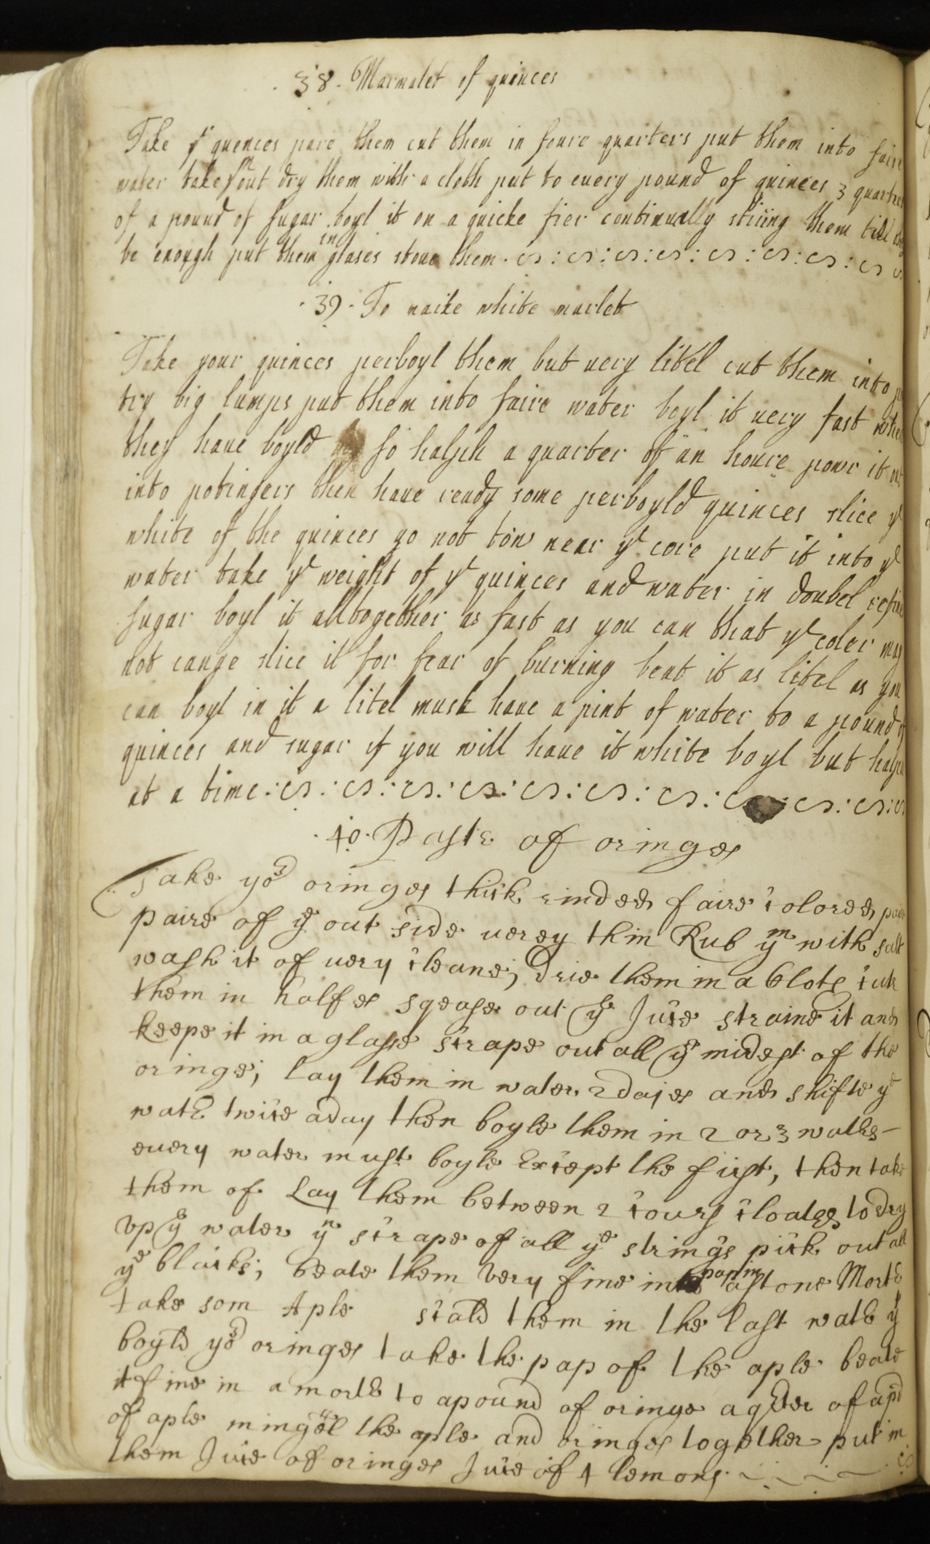 38. Marmalet of quinces
Take yr quences pare them cut them in foure quarters put them into faire
water take em out dry them with a cloth put to every pound of quinces 3 quarters
of a pound of sugar boyl it on a quicke fier continually stiring them till
be enough put them in glases stove them
39. To maike white marlet
Take your quinces perboyl them but very litel cut them into
try big lumps put them into faire water boyl it very fast when
they have boyld so halph a quarter of an houre powr it out
into potingers then have ready some perboyld quinces slice ye
white of the quinces go not tow near ye core put it into ye
water take ye weight of ye quinces and water in doubel refine
sugar boyl it altogether as fast as you can that ye coler may
not cange slice it for fear of burning beat it as litel as you
can boyl in it a litel musk have a pint of water to a pound of
quinces and sugar if you will have it white boyl but halph
at a time
40. Paste of oringes
Take yor oringes thick rinded faire colored
paire of ye out side verey thin Rub ym with salt
wash it of very cleane, Drie them in a Clote cutt
them in halfes sqease out ye Juce straine it and
keepe it in a glasse scrape out all ye midest of the
oringe; lay them in water 2 dayes and shifte ye
watr twice aday then boyle them in 2 or 3 watrs
every water must boyle Except the first, then take
them of Lay them between 2 cours cloates to dry
vp ye water yn scrape of all ye strings pick out all
ye blacks; beate them very fine in a stone Mortr
take som Aple scald them in the last watr yt
boyld yor oringes take the pap of the aple beate
it fine in a mortr to apound of oringe a qter of apd
of aple mingel the aple and oringes together put in
them Juce of oringes Juce of 4 lemons